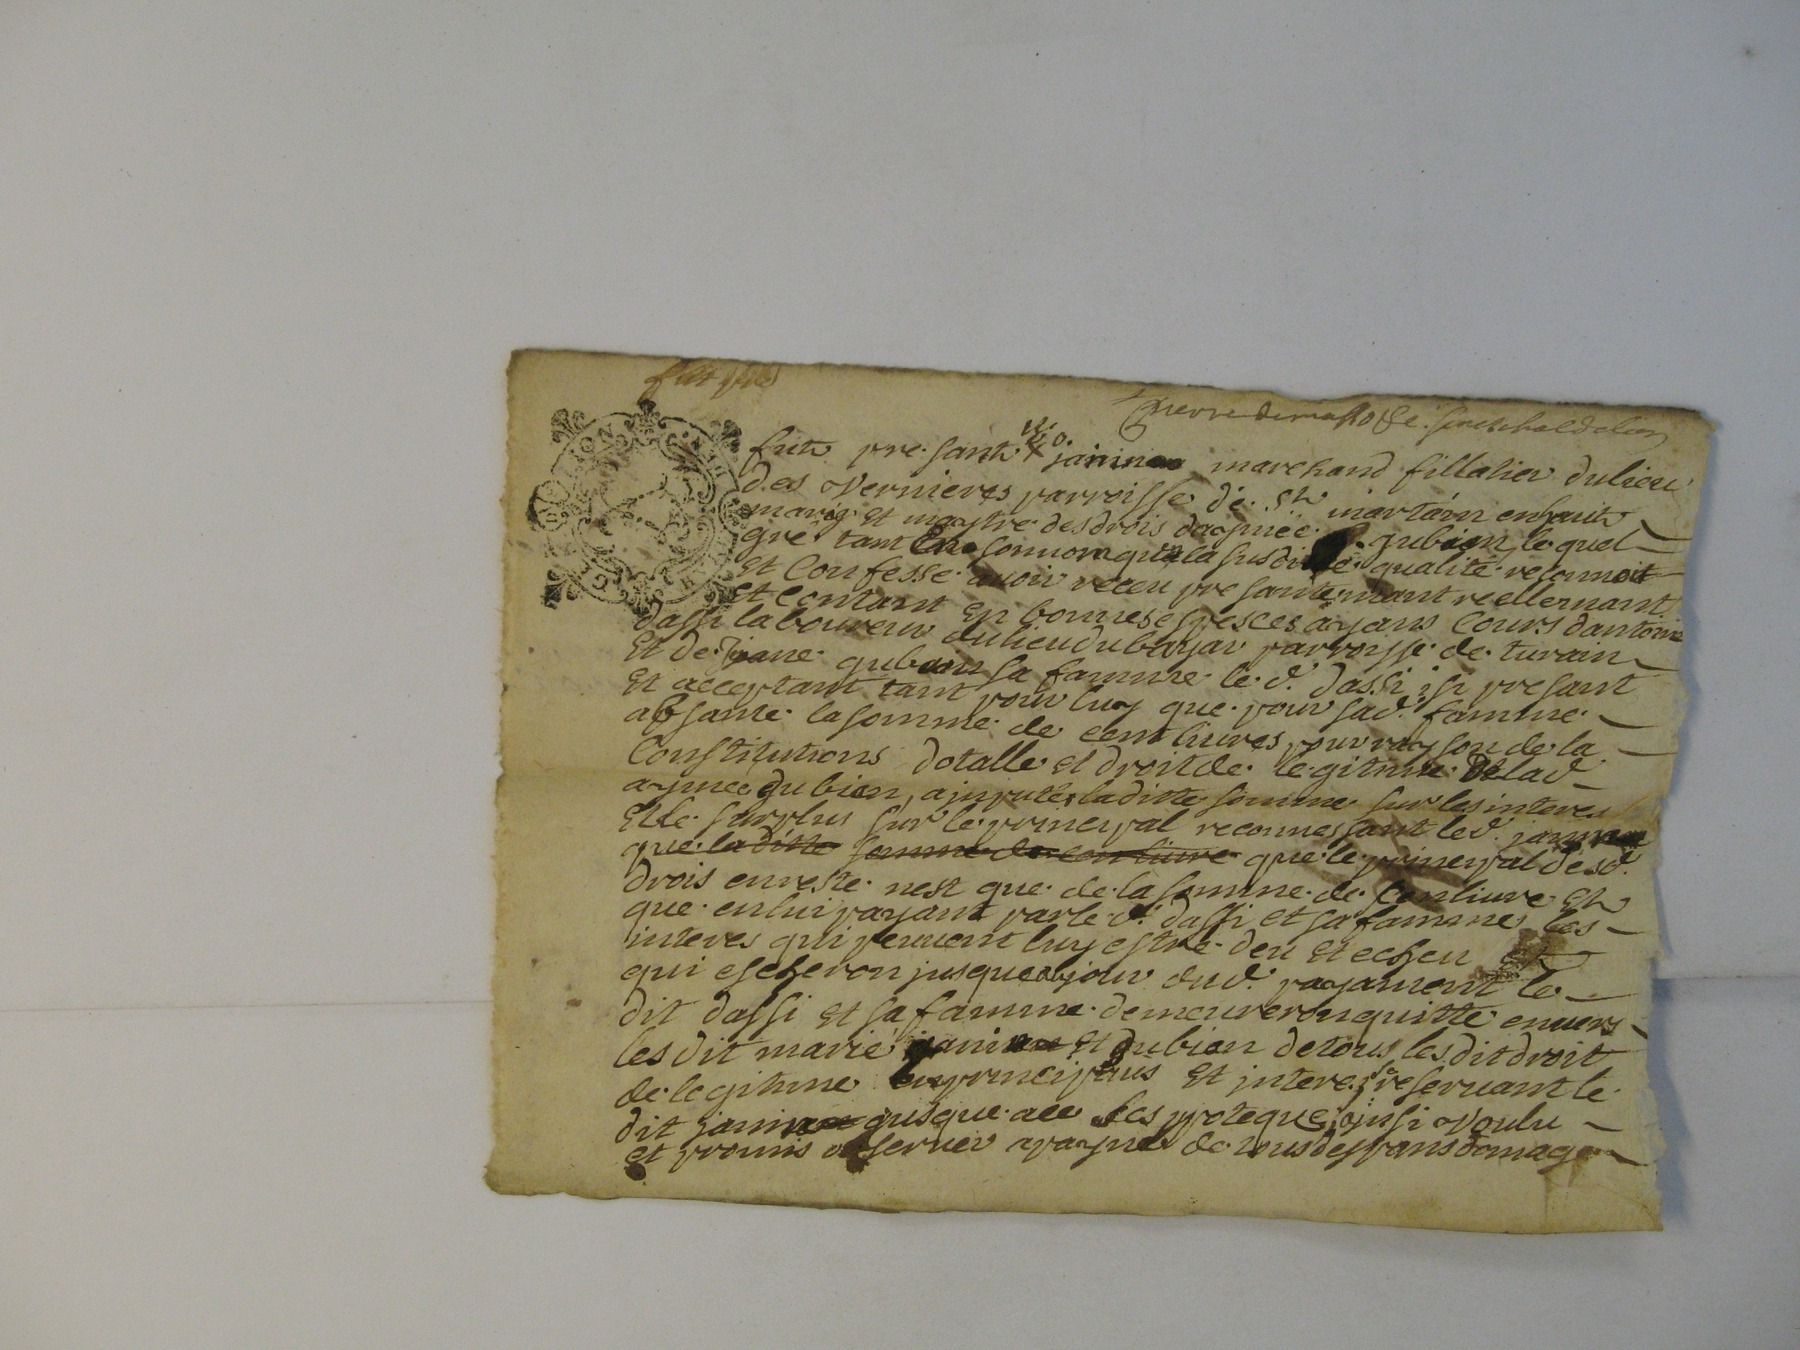 fut presant janinon marchand fillatier du lieu
des Vernieres parroisse de St martain en haut
mary et maystre des drois daymée gubian le quel
gré tant en son nom qu'en la susditte qualité reconnoit
et Confesse avoir receu presantemant reellemant
et contant en bonnes espesces ayans Cours dantoine
dassi laboureur du lieu du bayar parroisse de turain
et de Jane gubian sa famme le d. dassi isi presant
et acceptant tant pour luy que pour sad. famme
absante la somme de cent livres pour rayson de la
Constitutions dotalle et droit de legitime de lad
aymee gubien, a inputer laditte somme sur les interes
et le surplus sur le principal reconnessant led. janinon
que laditte somme de cen livre que le principal de sd.
drois en reste nest que de la somme de cen livre et
que en lui payant par le d. dassi et sa famme les
interes qui peuvent luy estre deu et echeu et
qui escheron jusque au jour dud. payament le
dit dassi et sa famme demeureron quitte envers
les dit marié janinon et gubian de tous les dit droit
de legitime en principaus et interes reservant le
dit janinon jusque ace ses ypoteque ainsi voulu
et promis observer a payne de tous despans domage